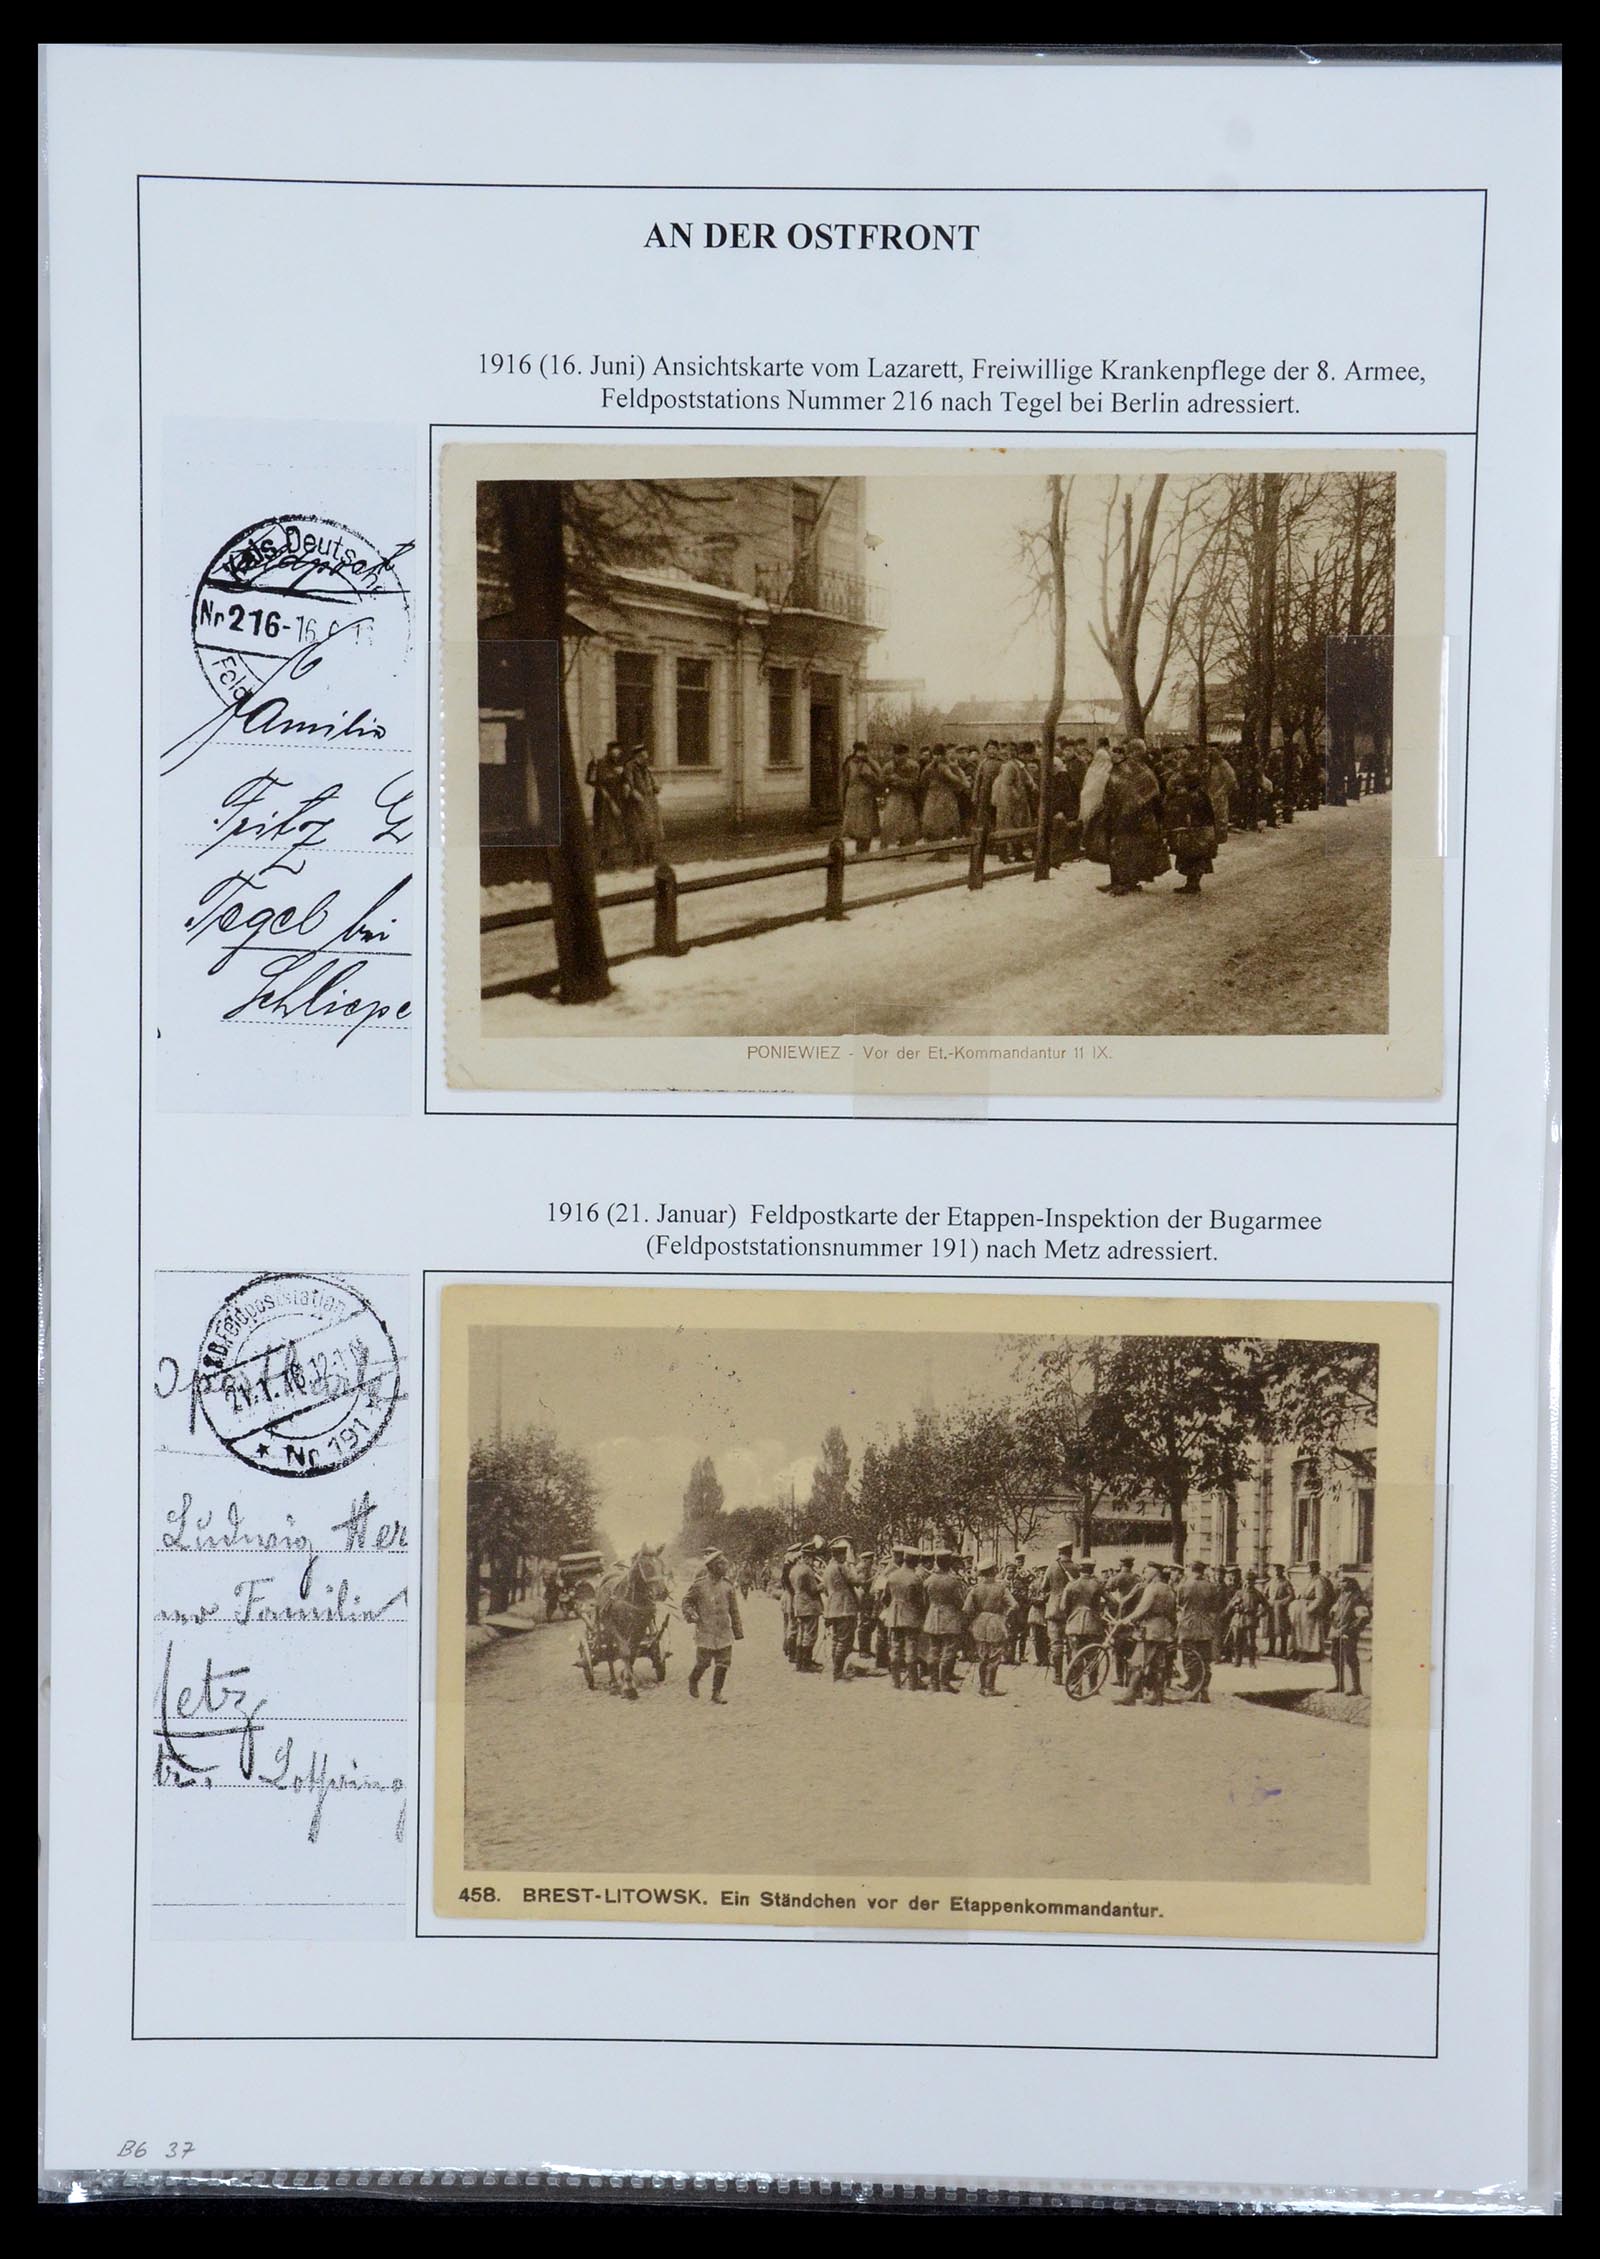 AN DER OSTFRONT
1916 (16. Juni) Ansichtskarte vom Lazarett, Freiwillige Krankenpflege der 8. Armee,
Feldpoststations Nummer 216 nach Tegel bei Berlin adressiert.
Kds. Deutsch
Nr 216 - 16
Feld
Familie
Fritz
Tegel bei
Schliepe
PONIEWIEZ - Vor der Et.-Kommandantur 11 IX.
1916 (21. Januar) Feldpostkarte der Etappen-Inspektion der Bugarmee
(Feldpoststationsnummer 191) nach Metz adressiert.
K.D. Feldpoststation
21.1.16.
* Nr 191 *
Ludwig Her
Familie
Metz
Lothring
458. BREST-LITOWSK. Ein Ständchen vor der Etappenkommandantur.
B6 37